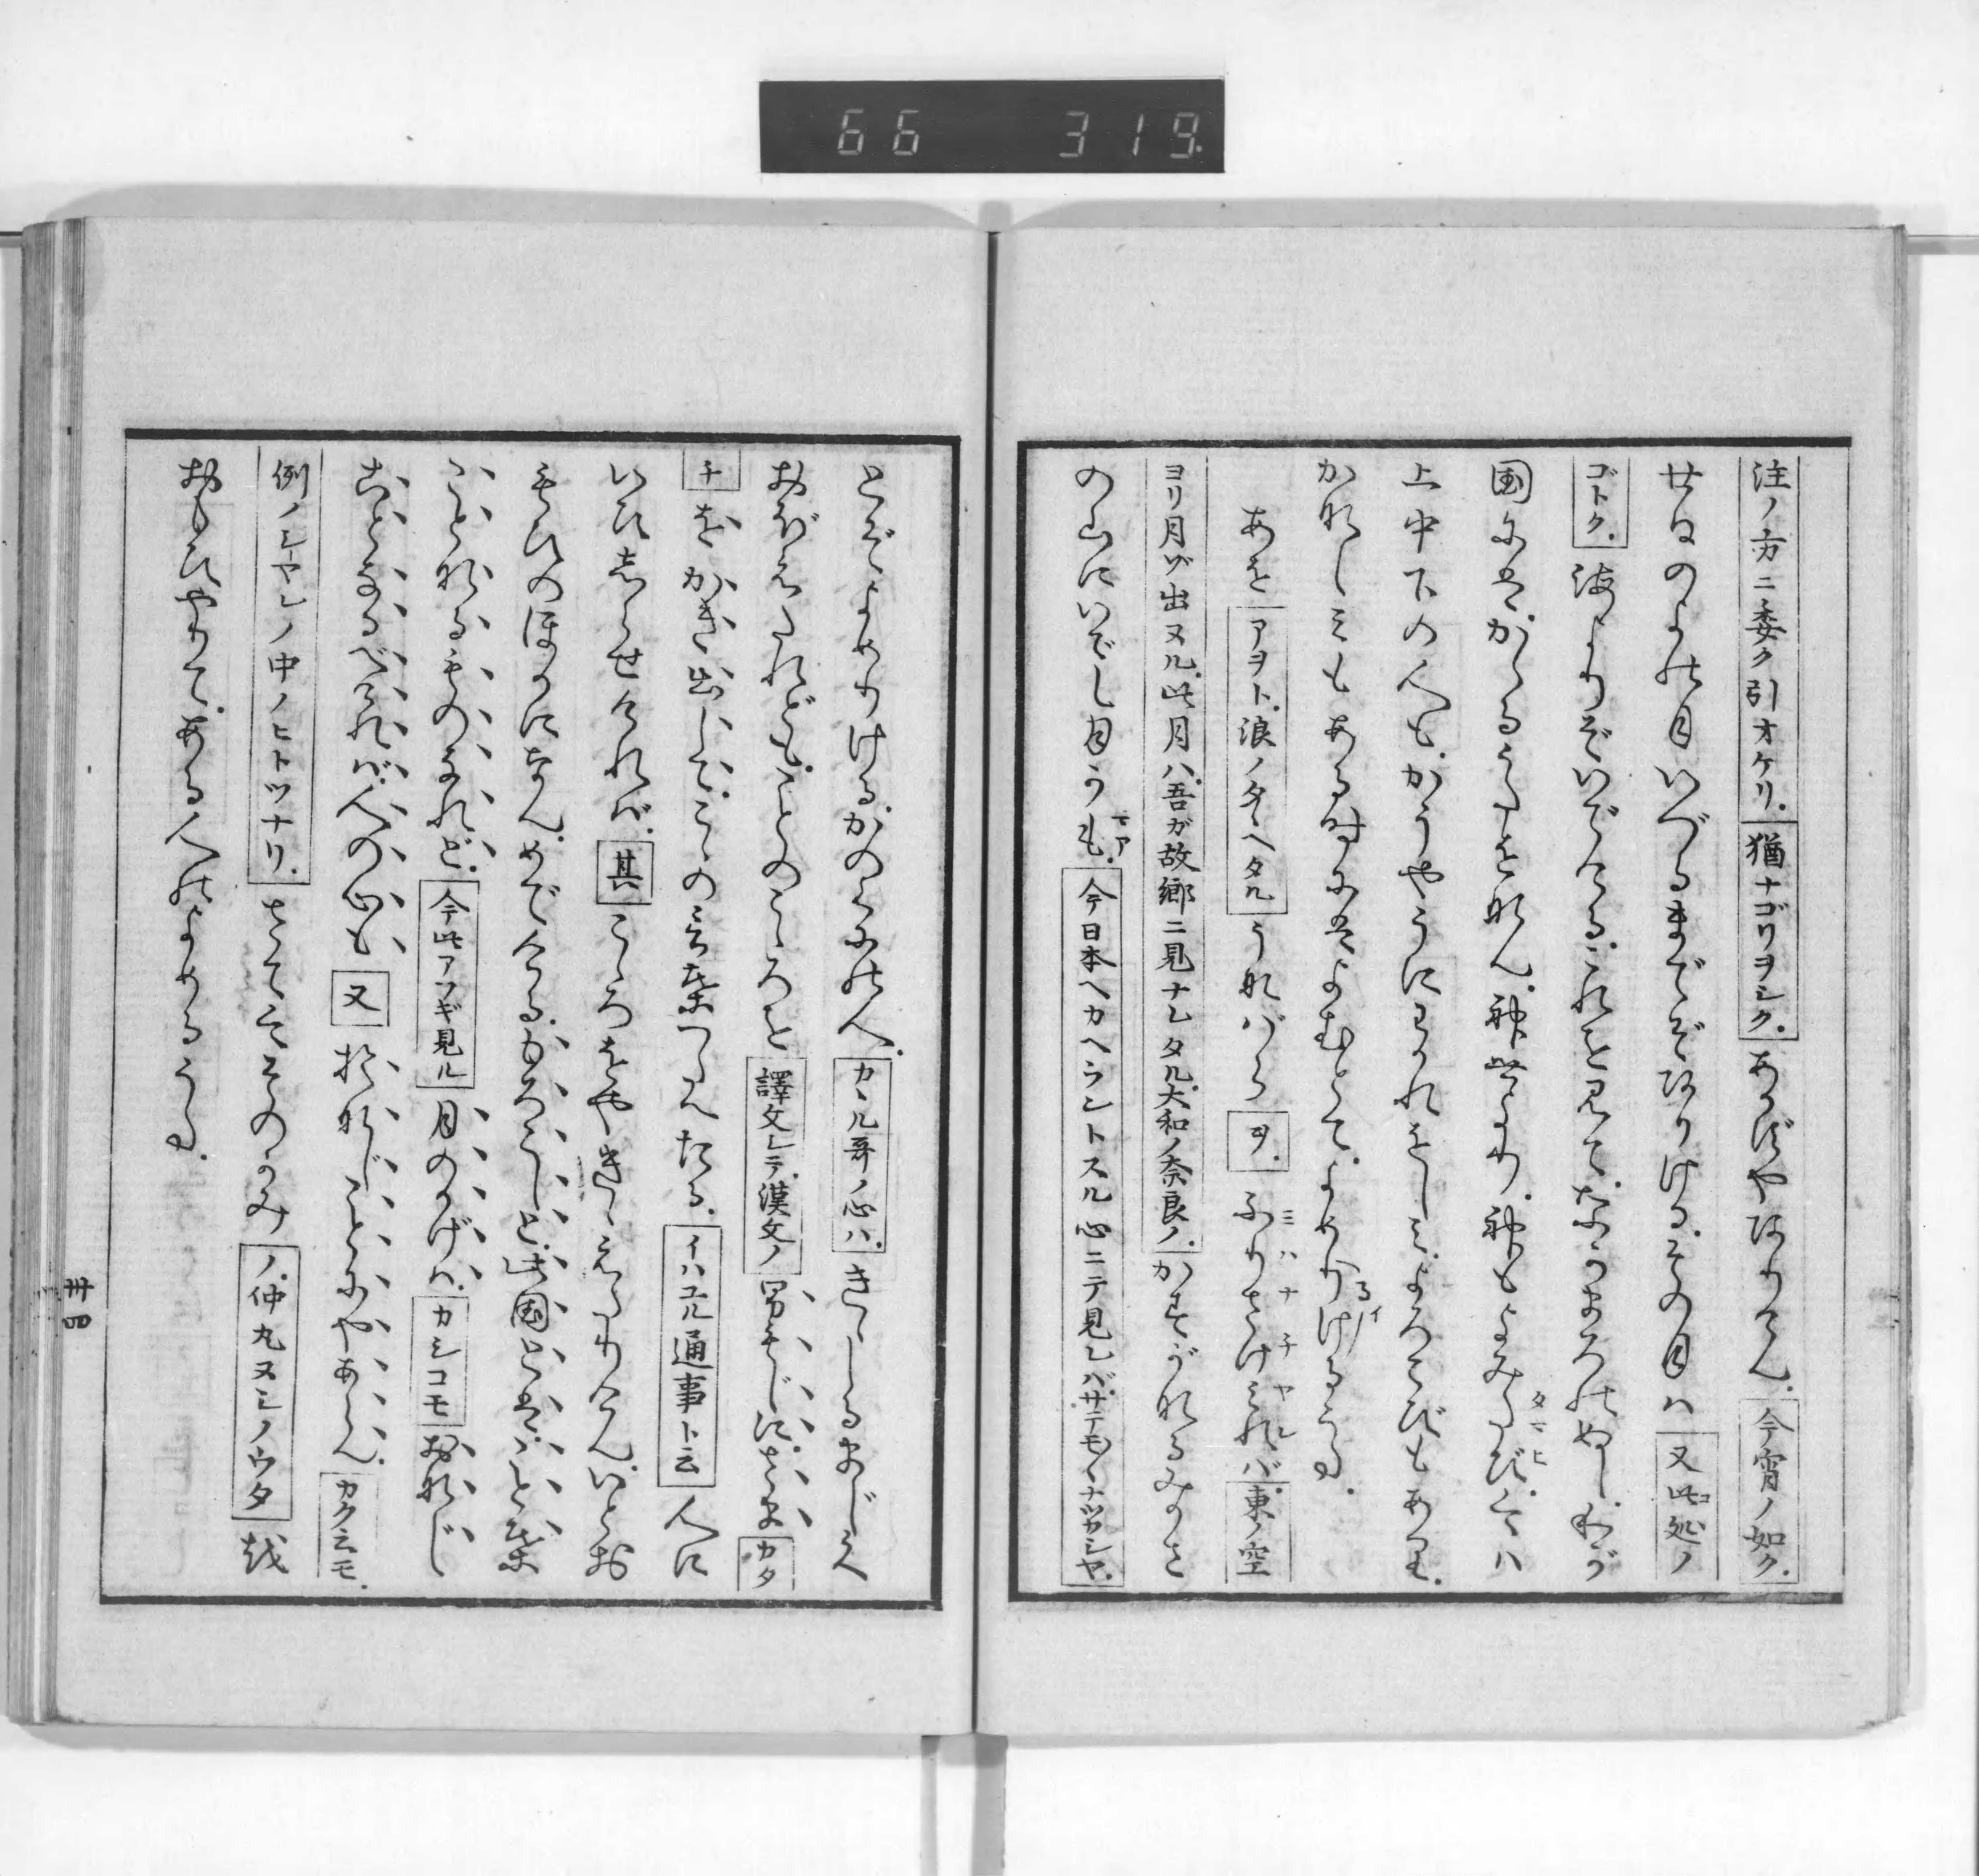 66 319
注ノ方ニ委ク引オケリ。猶ナゴリヲシク。あかずやありけん。今宵ノ如ク。
廿日のよの月いづるまでぞありける。その月ハ又此処ノ
ゴトク。海よりぞいでける。これを見て。なかまろのぬし。わが
国にはかゝるうたをなん。神世より。神もよみたび。今ハ
上中下の人も。かうやうにわかれをしミ。よろこびもあり。
かなしミもある時にはよむとて。よめりけるうた。
あをアヲト。浪ノタヽヘタルうなばらヲ。ふりさけみれバ。東ノ空
ヨリ月ヅ出ヌル。此月ハ。吾ガ故郷ニ見ナレタル。大和ノ奈良ノ。かすがなるみかさ
の山にいでし月かも。今日本ヘカヘラントスル心ニテ見レバ。サテモ〳〵ナツカシヤ。
とぞよめりける。かのくにの人。カヽル哥ノ心ハ。きゝしるまじく
おぼえたれども。ことのこゝろを譯文シテ。漢文ノ男もじに。さまカタ
チをかき出して。こゝの言葉つたへたる。イハユル通事ト云人に
いひしらせければ。其こゝろをやきゝえたりけん。いとお
もひのほかになん。めでける。もろこしと。此国とは。こと葉
ことなるものなれど。今此アフギ見ル月のかげハ。カシコモおなじ
ことなるべければ。人の心も又おなじことにやあらん。カク云モ。
例ノシヤレノ中ノヒトツナリ。さていまそのかみノ。仲丸ヌシノウタを
おもひやりて。ある人のよめるうた。
卅四